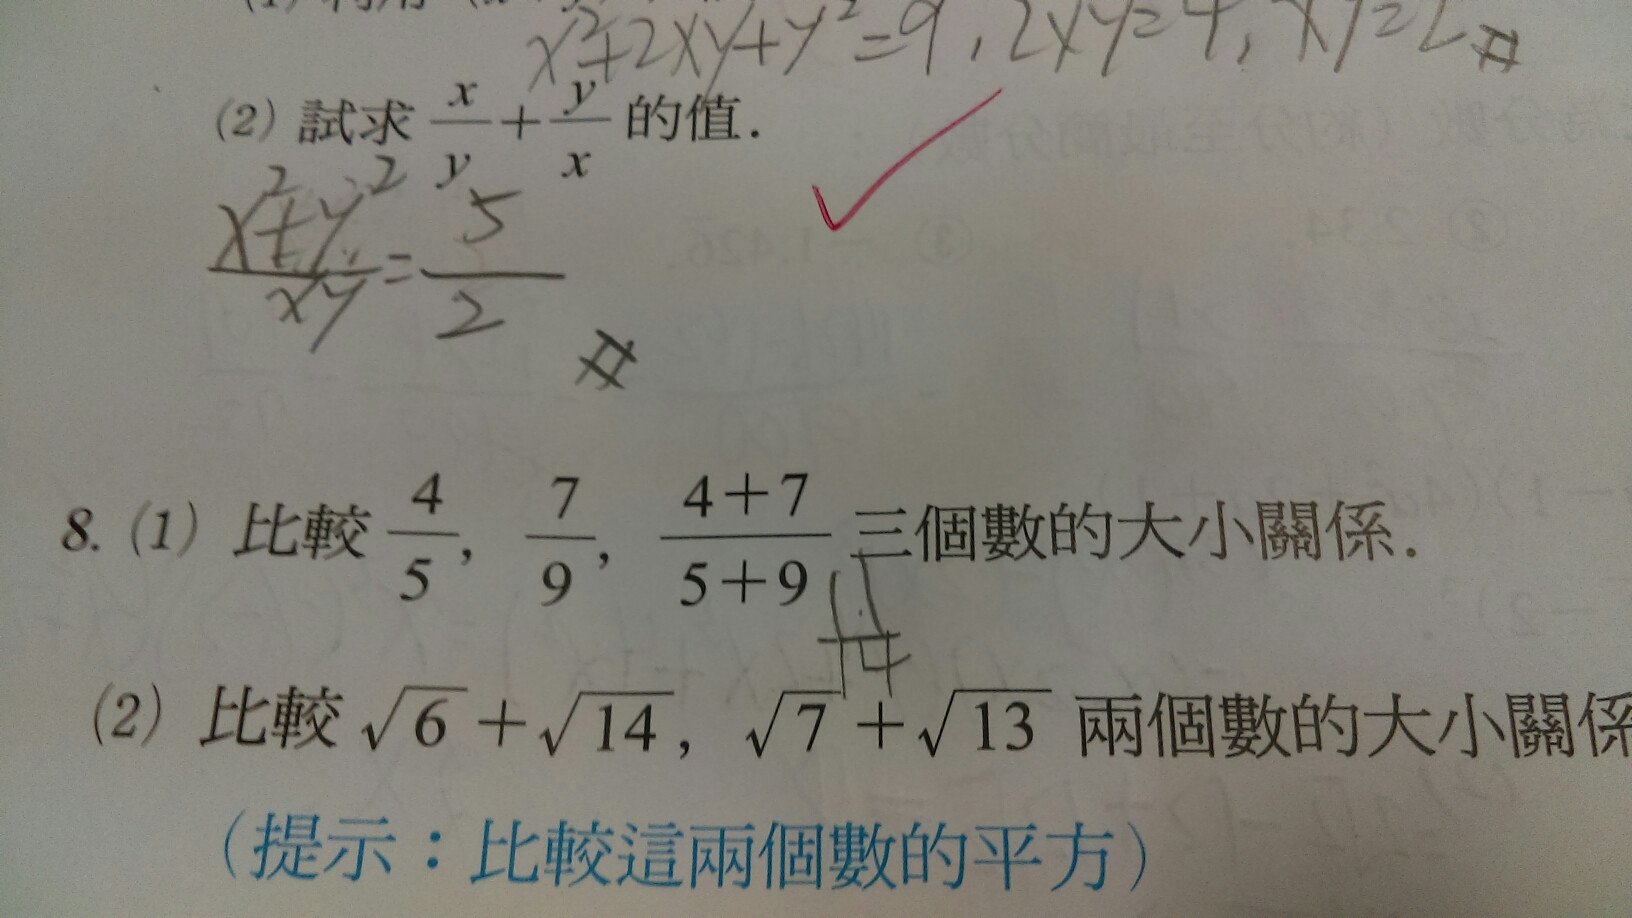 (1) 利用
x²+2xy+y²=9, 2xy=4, xy=2 #
(2) 試求 x/y + y/x 的值.
(x²+y²)/xy = 5/2 #
8. (1) 比較 4/5, 7/9, (4+7)/(5+9) 三個數的大小關係.
11/14
(2) 比較 √6+√14, √7+√13 兩個數的大小關係
(提示：比較這兩個數的平方)